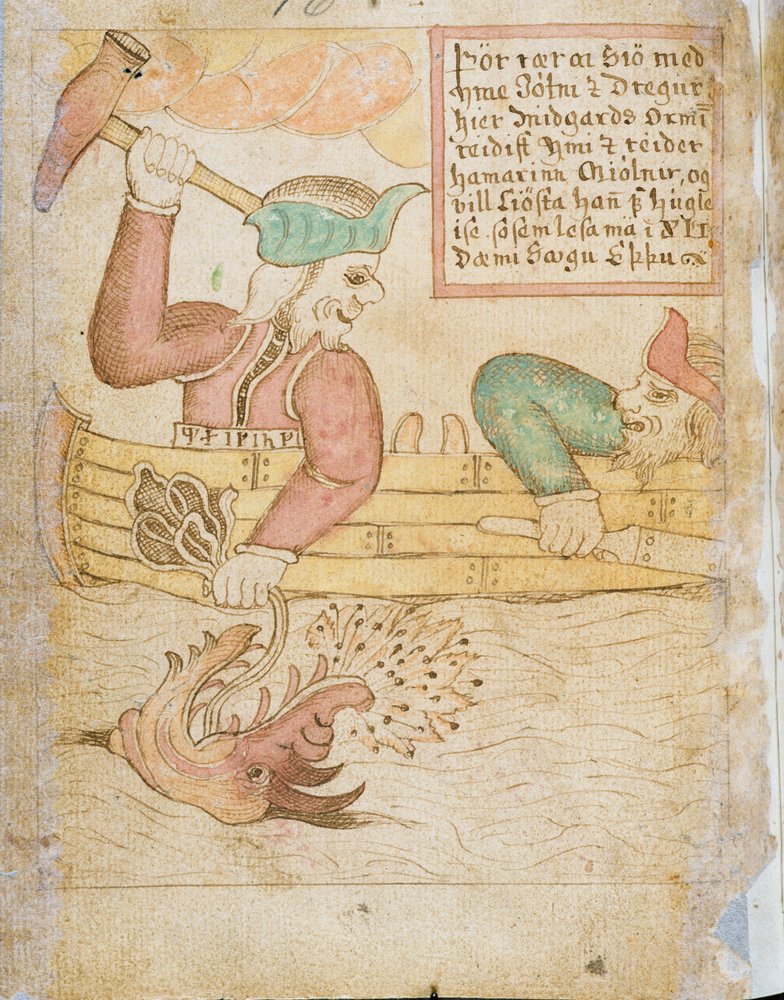 Þör rær ai Siö med
yme Jötni ⁊ Dregur
hier Midgards Ormī
reidist ymi ⁊ reider
hamarinn Miölnir, og
vill Liösta han̄
so sem lesa mä i
Dæmi Sægu